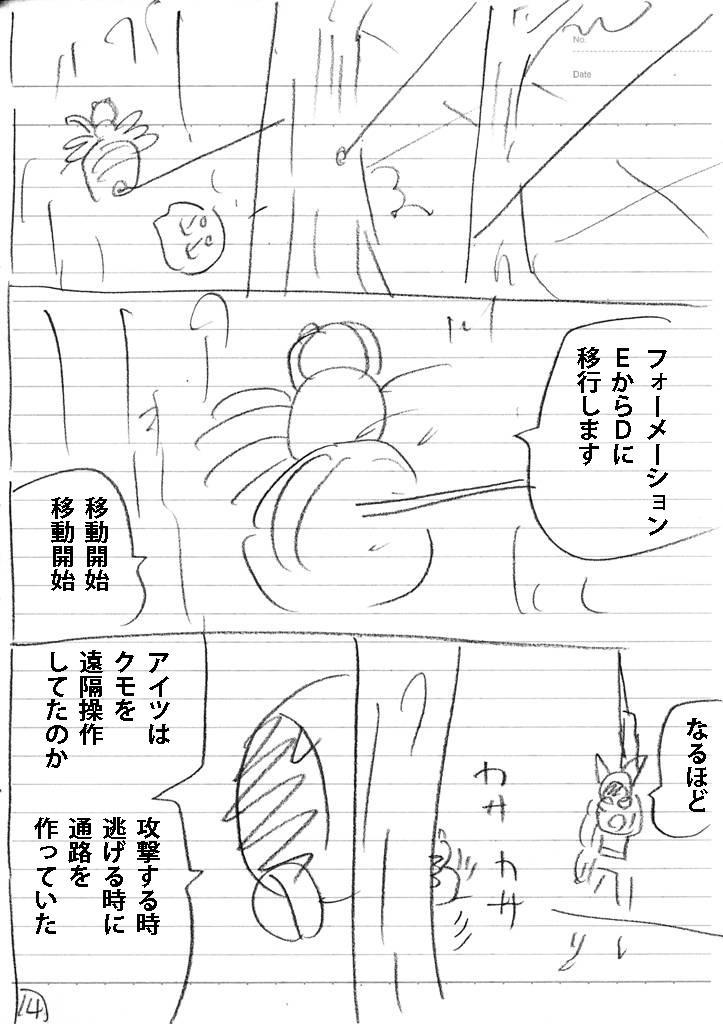 No.
Date
フォーメーション
EからDに
移行します
移動開始
移動開始
なるほど
わサ
わサ
アイツは
クモを
遠隔操作
してたのか
攻撃する時
逃げる時に
通路を
作っていた
14